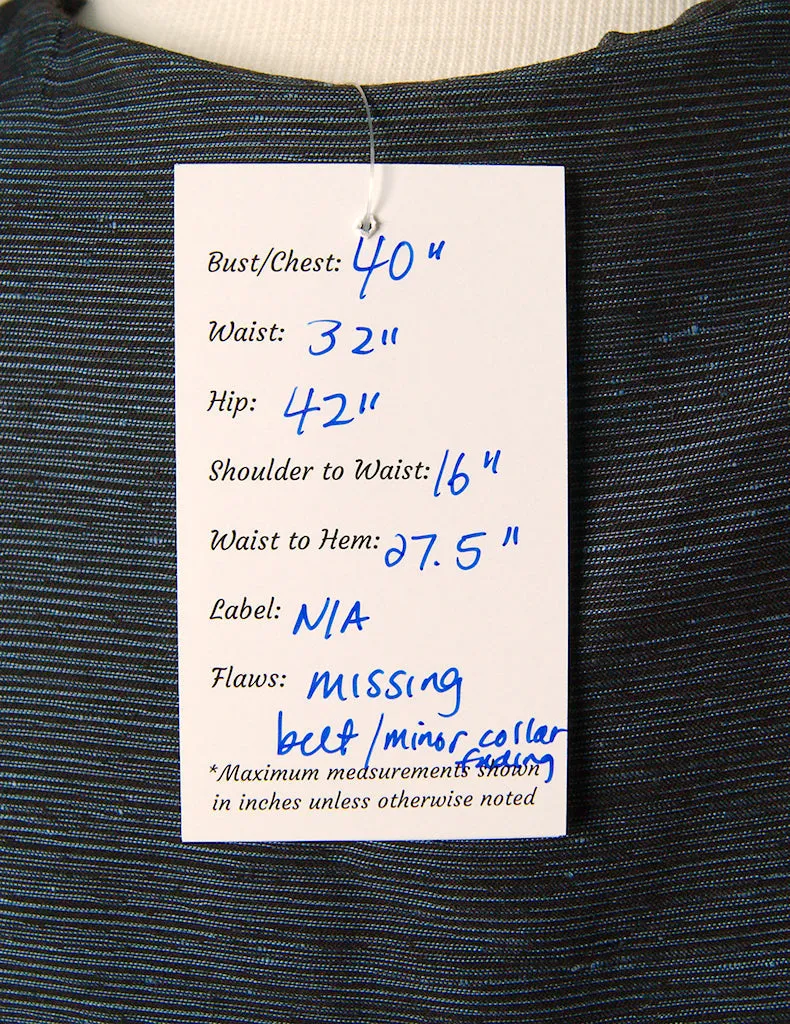 Bust/Chest: 40"
Waist: 32"
Hip: 42"
Shoulder to Waist: 16"
Waist to Hem: 27.5"
Label: N/A
Flaws: missing
belt/minor collar
fading
*Maximum measurements shown
in inches unless otherwise noted